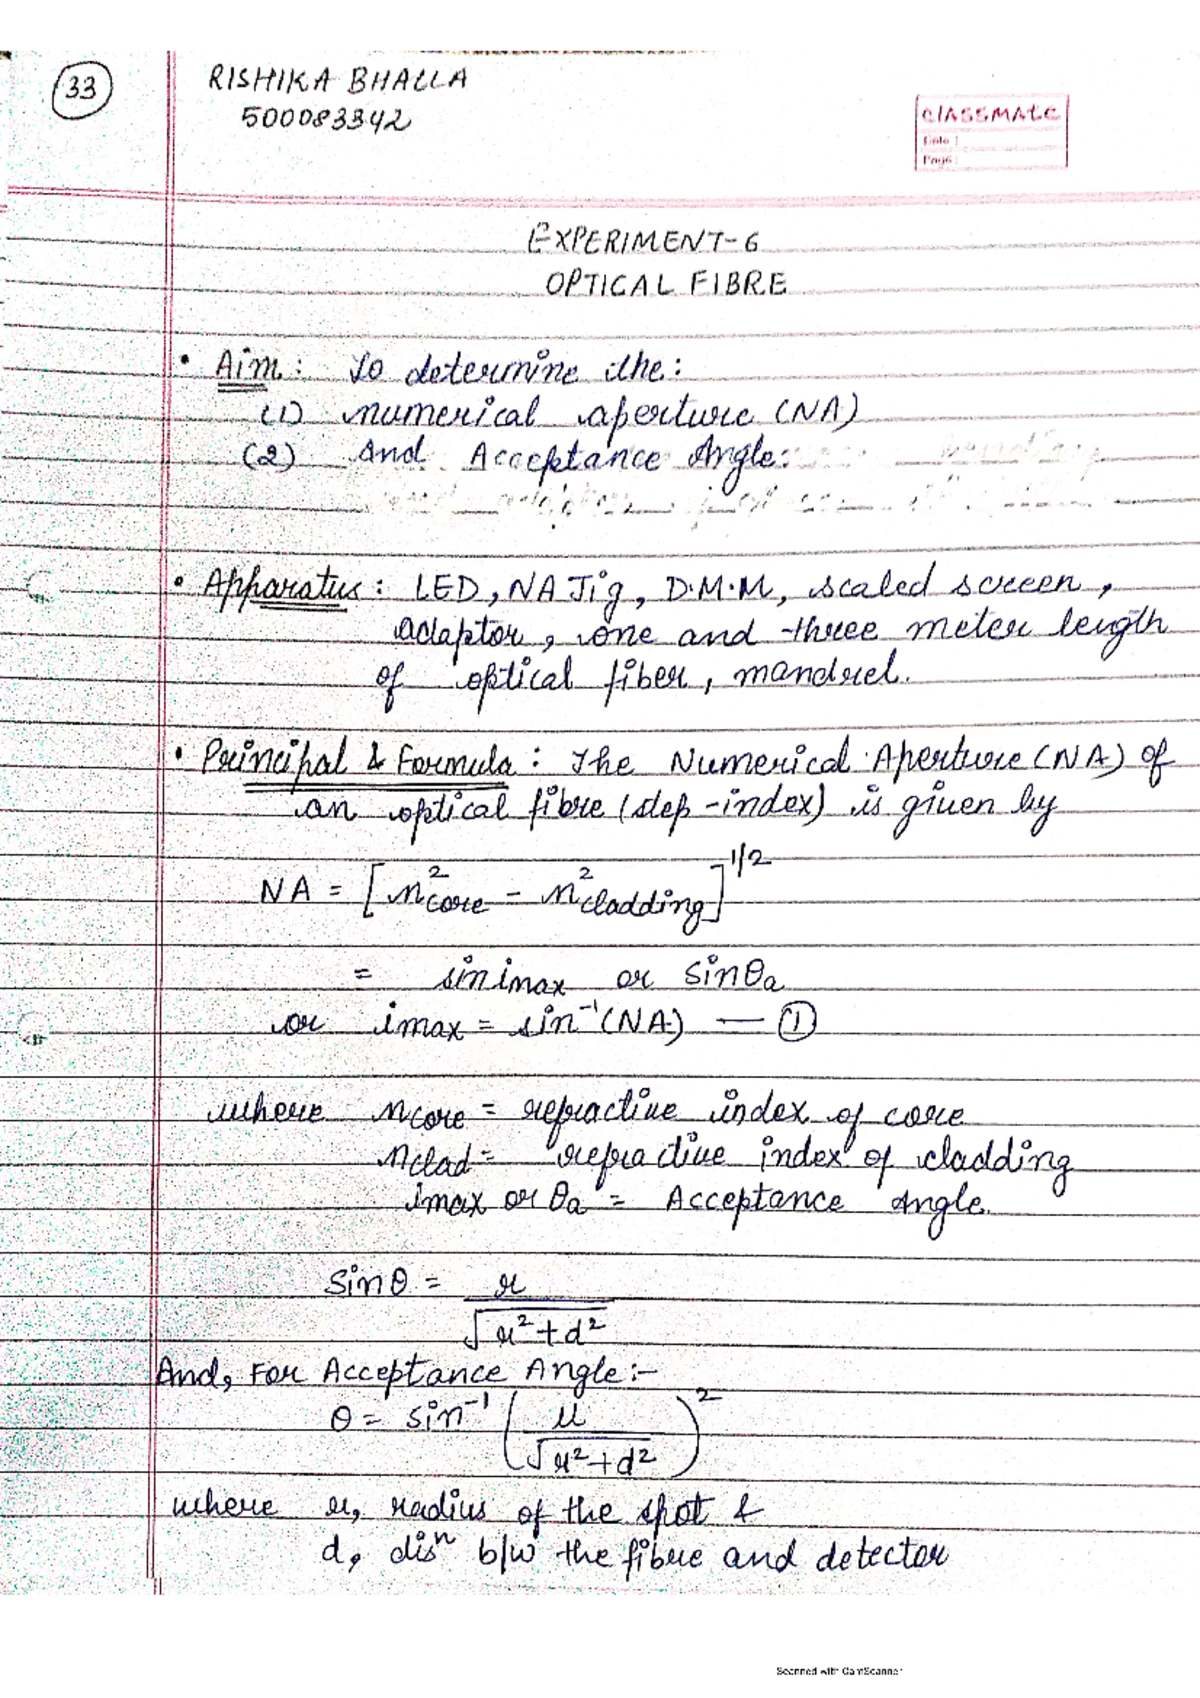 33
RISHIKA BHALLA
500083342
classmate
Date :
Page :
EXPERIMENT-6
OPTICAL FIBRE
• Aim : To determine the :
(1) numerical aperture (NA)
(2) And Acceptance Angle.
• Apparatus : LED, NA Jig, D.M.M, scaled screen,
adaptor, one and three meter length
of optical fiber, mandrel.
• Principal & Formula : The Numerical Aperture (NA) of
an optical fibre (step-index) is given by
NA = [n²core - n²cladding]^1/2
= sin imax or sinθa
or imax = sin⁻¹(NA) — ①
where ncore = refractive index of core
nclad = refractive index of cladding
imax or θa = Acceptance Angle.
Sinθ = r / √r²+d²
And, For Acceptance Angle :-
θ = sin⁻¹ (r / √r²+d²)²
where r, radius of the spot &
d, disⁿ b/w the fibre and detector
Scanned with CamScanner